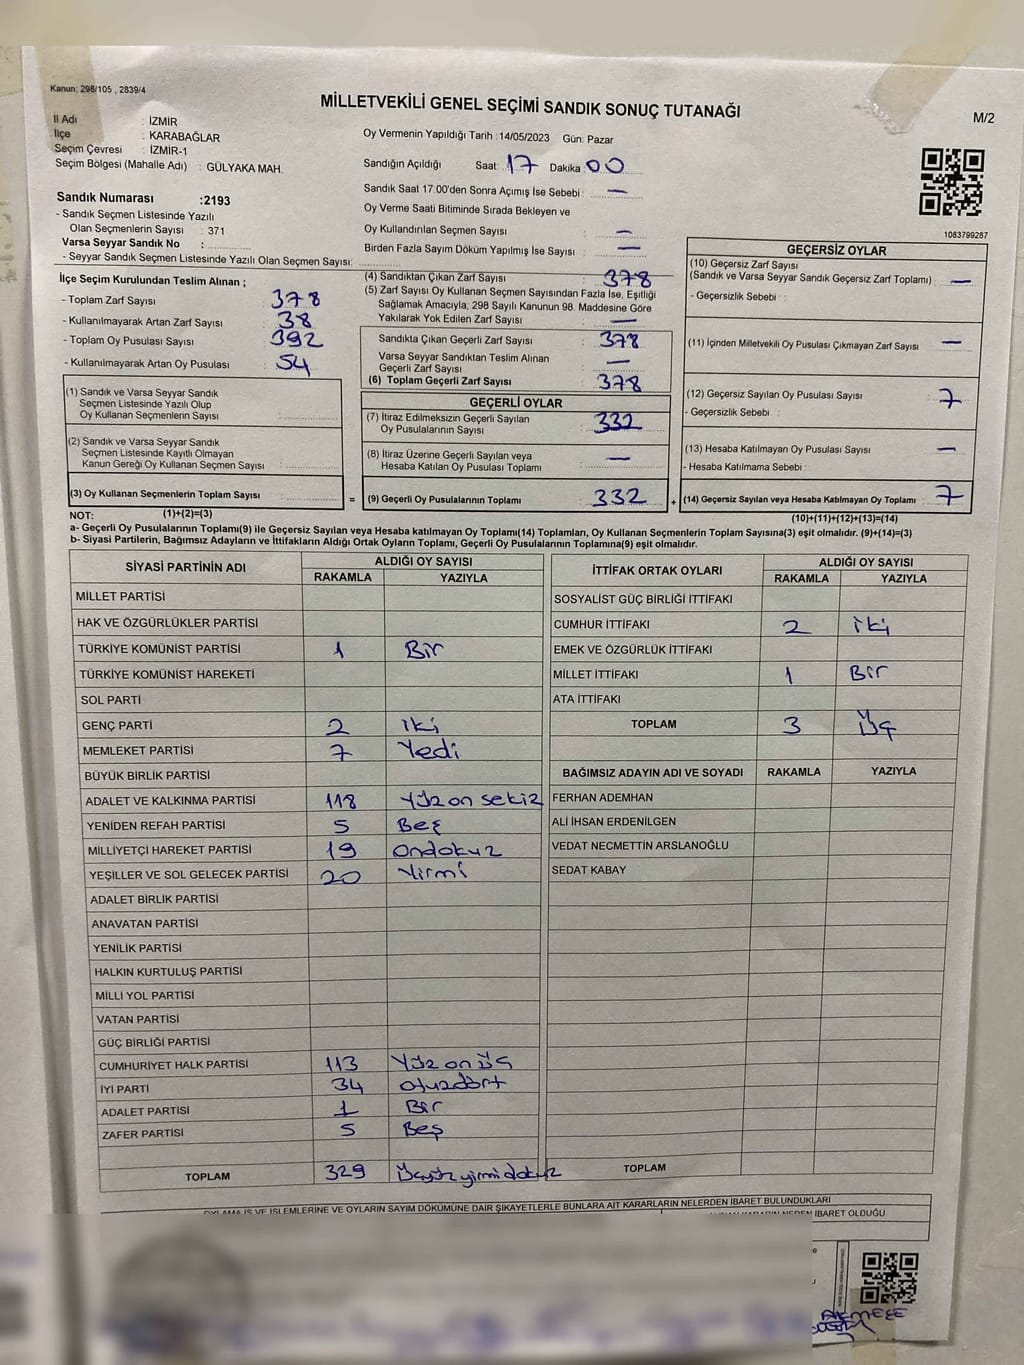 Kanun; 298/105 , 2839/4
MİLLETVEKİLİ GENEL SEÇİMİ SANDIK SONUÇ TUTANAĞI
M/2
İl Adı : İZMİR
İlçe : KARABAĞLAR
Seçim Çevresi : İZMİR-1
Seçim Bölgesi (Mahalle Adı) : GÜLYAKA MAH.
Oy Vermenin Yapıldığı Tarih :14/05/2023 Gün: Pazar
Sandığın Açıldığı Saat: 17 Dakika: 00
Sandık Saat 17:00'den Sonra Açımış İse Sebebi : —
Oy Verme Saati Bitiminde Sırada Bekleyen ve
Oy Kullandırılan Seçmen Sayısı : —
Birden Fazla Sayım Döküm Yapılmış İse Sayısı : —
1083799287
Sandık Numarası :2193
- Sandık Seçmen Listesinde Yazılı
Olan Seçmenlerin Sayısı : 371
Varsa Seyyar Sandık No :
- Seyyar Sandık Seçmen Listesinde Yazılı Olan Seçmen Sayısı:
İlçe Seçim Kurulundan Teslim Alınan ;
- Toplam Zarf Sayısı : 378
- Kullanılmayarak Artan Zarf Sayısı : 38
- Toplam Oy Pusulası Sayısı : 392
- Kullanılmayarak Artan Oy Pusulası : 54
(1) Sandık ve Varsa Seyyar Sandık
Seçmen Listesinde Yazılı Olup
Oy Kullanan Seçmenlerin Sayısı :
(2) Sandık ve Varsa Seyyar Sandık
Seçmen Listesinde Kayıtlı Olmayan
Kanun Gereği Oy Kullanan Seçmen Sayısı :
(3) Oy Kullanan Seçmenlerin Toplam Sayısı :
(1)+(2)=(3)
(4) Sandıktan Çıkan Zarf Sayısı : 378
(5) Zarf Sayısı Oy Kullanan Seçmen Sayısından Fazla İse, Eşitliği
Sağlamak Amacıyla, 298 Sayılı Kanunun 98. Maddesine Göre
Yakılarak Yok Edilen Zarf Sayısı : —
Sandıkta Çıkan Geçerli Zarf Sayısı : 378
Varsa Seyyar Sandıktan Teslim Alınan
Geçerli Zarf Sayısı : —
(6) Toplam Geçerli Zarf Sayısı : 378
GEÇERLİ OYLAR
(7) İtiraz Edilmeksizin Geçerli Sayılan
Oy Pusulalarının Sayısı : 332
(8) İtiraz Üzerine Geçerli Sayılan veya
Hesaba Katılan Oy Pusulası Toplamı : —
= (9) Geçerli Oy Pusulalarının Toplamı : 332 +
GEÇERSİZ OYLAR
(10) Geçersiz Zarf Sayısı
(Sandık ve Varsa Seyyar Sandık Geçersiz Zarf Toplamı) : —
- Geçersizlik Sebebi :
(11) İçinden Milletvekili Oy Pusulası Çıkmayan Zarf Sayısı : —
(12) Geçersiz Sayılan Oy Pusulası Sayısı : 7
- Geçersizlik Sebebi :
(13) Hesaba Katılmayan Oy Pusulası Sayısı : —
- Hesaba Katılmama Sebebi :
(14) Geçersiz Sayılan veya Hesaba Katılmayan Oy Toplamı : 7
(10)+(11)+(12)+(13)=(14)
NOT:
a- Geçerli Oy Pusulalarının Toplamı(9) ile Geçersiz Sayılan veya Hesaba katılmayan Oy Toplamı(14) Toplamları, Oy Kullanan Seçmenlerin Toplam Sayısına(3) eşit olmalıdır. (9)+(14)=(3)
b- Siyasi Partilerin, Bağımsız Adayların ve İttifakların Aldığı Ortak Oyların Toplamı, Geçerli Oy Pusulalarının Toplamına(9) eşit olmalıdır.
SİYASİ PARTİNİN ADI ALDIĞI OY SAYISI
RAKAMLA YAZIYLA
MİLLET PARTİSİ
HAK VE ÖZGÜRLÜKLER PARTİSİ
TÜRKİYE KOMÜNİST PARTİSİ 1 Bir
TÜRKİYE KOMÜNİST HAREKETİ
SOL PARTİ
GENÇ PARTİ 2 iki
MEMLEKET PARTİSİ 7 Yedi
BÜYÜK BİRLİK PARTİSİ
ADALET VE KALKINMA PARTİSİ 118 Yüz on sekiz
YENİDEN REFAH PARTİSİ 5 Beş
MİLLİYETÇİ HAREKET PARTİSİ 19 ondokuz
YEŞİLLER VE SOL GELECEK PARTİSİ 20 Yirmi
ADALET BİRLİK PARTİSİ
ANAVATAN PARTİSİ
YENİLİK PARTİSİ
HALKIN KURTULUŞ PARTİSİ
MİLLİ YOL PARTİSİ
VATAN PARTİSİ
GÜÇ BİRLİĞİ PARTİSİ
CUMHURİYET HALK PARTİSİ 113 Yüz on üç
İYİ PARTİ 34 otuzdört
ADALET PARTİSİ 1 Bir
ZAFER PARTİSİ 5 Beş
TOPLAM 329 üçyüzyirmidokuz
İTTİFAK ORTAK OYLARI ALDIĞI OY SAYISI
RAKAMLA YAZIYLA
SOSYALİST GÜÇ BİRLİĞİ İTTİFAKI
CUMHUR İTTİFAKI 2 iki
EMEK VE ÖZGÜRLÜK İTTİFAKI
MİLLET İTTİFAKI 1 Bir
ATA İTTİFAKI
TOPLAM 3 üç
BAĞIMSIZ ADAYIN ADI VE SOYADI RAKAMLA YAZIYLA
FERHAN ADEMHAN
ALİ İHSAN ERDENİLGEN
VEDAT NECMETTİN ARSLANOĞLU
SEDAT KABAY
TOPLAM
OYLAMA İŞ VE İŞLEMLERİNE VE OYLARIN SAYIM DÖKÜMÜNE DAİR ŞİKAYETLERLE BUNLARA AİT KARARLARIN NELERDEN İBARET BULUNDUKLARI
KARARIN NEDEN İBARET OLDUĞU